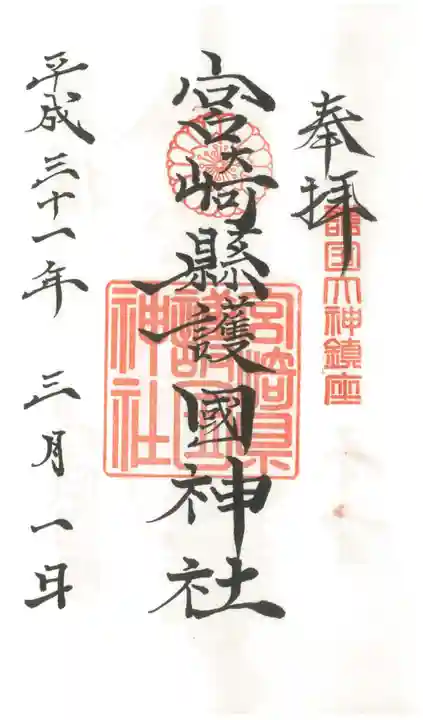 奉拝
護国大神鎮座
宮崎縣護國神社
宮崎県
護国
神社
平成三十一年 三月一日